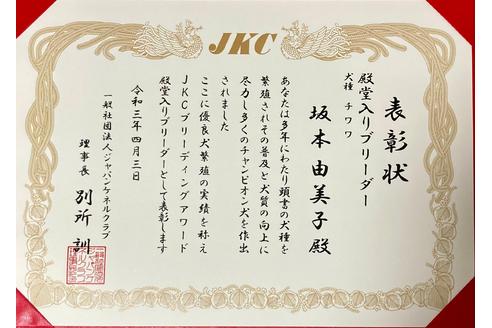 JKC
表彰状
殿堂入りブリーダー
犬種 チワワ
坂本由美子殿
あなたは多年にわたり頭書の犬種を
繁殖されその普及と犬質の向上に
尽力し多くのチャンピオン犬を作出
されました
ここに優良犬繁殖の実績を称え
JKCブリーディングアワード
殿堂入りブリーダーとして表彰します
令和三年四月三日
一般社団法人ジャパンケネルクラブ
理事長 別所 訓